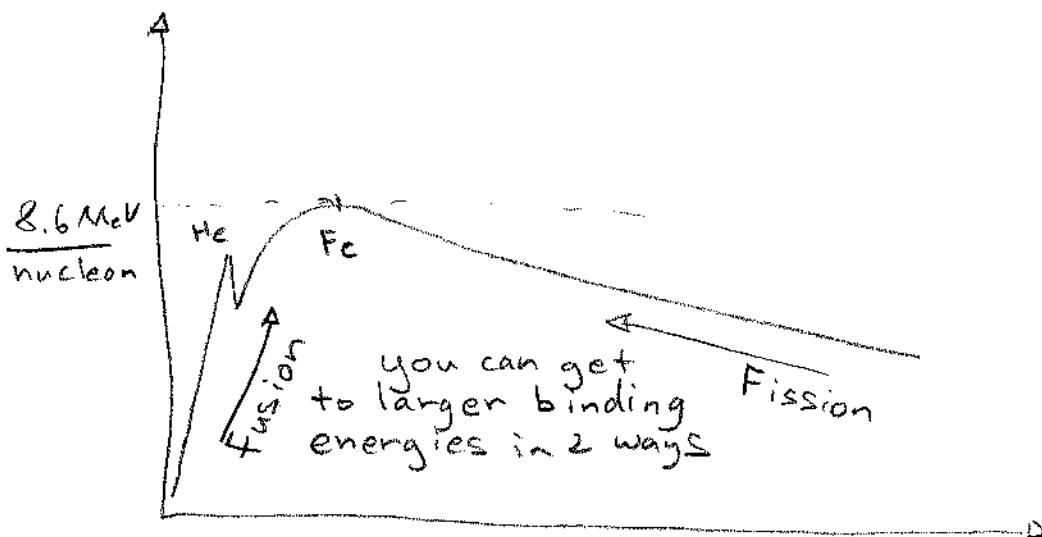 8.6 MeV
nucleon
He
Fe
Fusion
you can get
to larger binding
energies in 2 ways
Fission